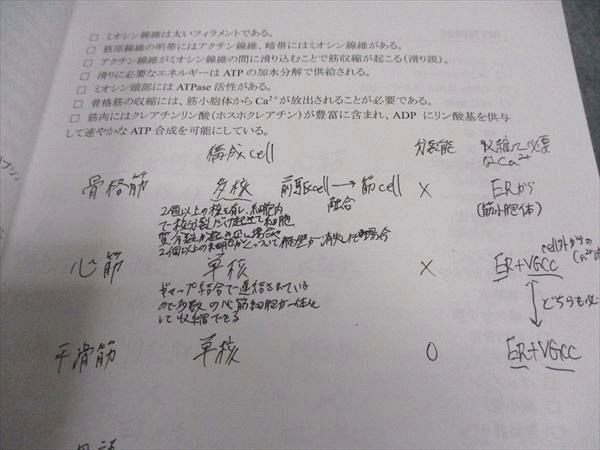 □ ミオシン線維は太いフィラメントである。
□ 筋原線維の明帯にはアクチン線維、暗帯にはミオシン線維がある。
□ アクチン線維がミオシン線維の間に滑り込むことで筋収縮が起こる（滑り説）。
□ 滑りに必要なエネルギーは ATP の加水分解で供給される。
□ ミオシン頭部には ATPase 活性がある。
□ 骨格筋の収縮には、筋小胞体から Ca²⁺ が放出されることが必要である。
□ 筋肉にはクレアチンリン酸（ホスホクレアチン）が豊富に含まれ、ADP にリン酸基を供与
して速やかな ATP 合成を可能にしている。
構成cell 分裂能 収縮に必要
なCa²⁺
骨格筋 多核 前駆cell → 筋cell × ERから
融合 (筋小胞体)
2個以上の核を有し、細胞内
で核分裂だけ起きて細胞
質分裂が起きない場合や
2個以上の細胞が 消失した場合
心筋 単核 × ER+VGCC
cell外からの
Ca²⁺
ギャップ結合で連結されている
ので多数の心筋細胞が一体化
して収縮できる
どちらも必
平滑筋 単核 ○ ER+VGCC